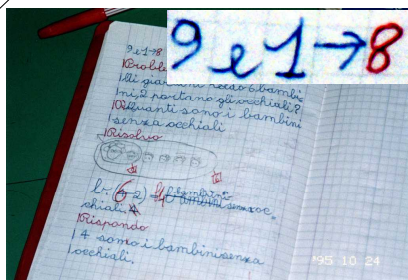 9 e 1 → 8
9 e 1 → 8
Problema
Ai giardini vedo 6 bambi-
ni, 2 portano gli occhiali?
Quanti sono i bambini
senza occhiali
Risolvo
b. (6 - 2) = 4 bambini senza oc
chiali. 4
Rispondo
4 sono i bambini senza
occhiali.
'95 10 24